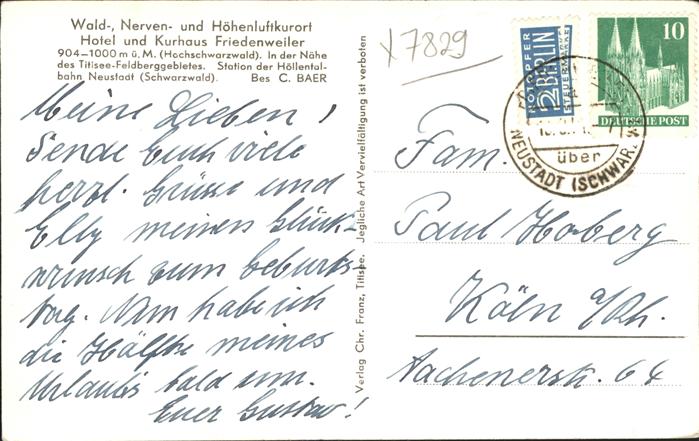 Wald-, Nerven- und Höhenluftkurort
Hotel und Kurhaus Friedenweiler
904–1000 m ü. M. (Hochschwarzwald). In der Nähe
des Titisee-Feldberggebietes. Station der Höllental-
bahn Neustadt (Schwarzwald). Bes C. BAER
Meine Lieben!
Sende Euch viele
herzl. Grüsse und
Elly meinen Glück-
wunsch zum Geburts-
tag. Nun habe ich
die Hälfte meines
Urlaubs bald um.
Euer Gustav!
Verlag Chr. Franz, Titisee. Jegliche Art Vervielfältigung ist verboten
x7829
NOTOPFER
2 BERLIN
STEUERMARKE
10
DEUTSCHE POST
über
NEUSTADT (SCHWARZ
Fam.
Paul Horberg
Köln a/Rh.
Aachenerstr. 64